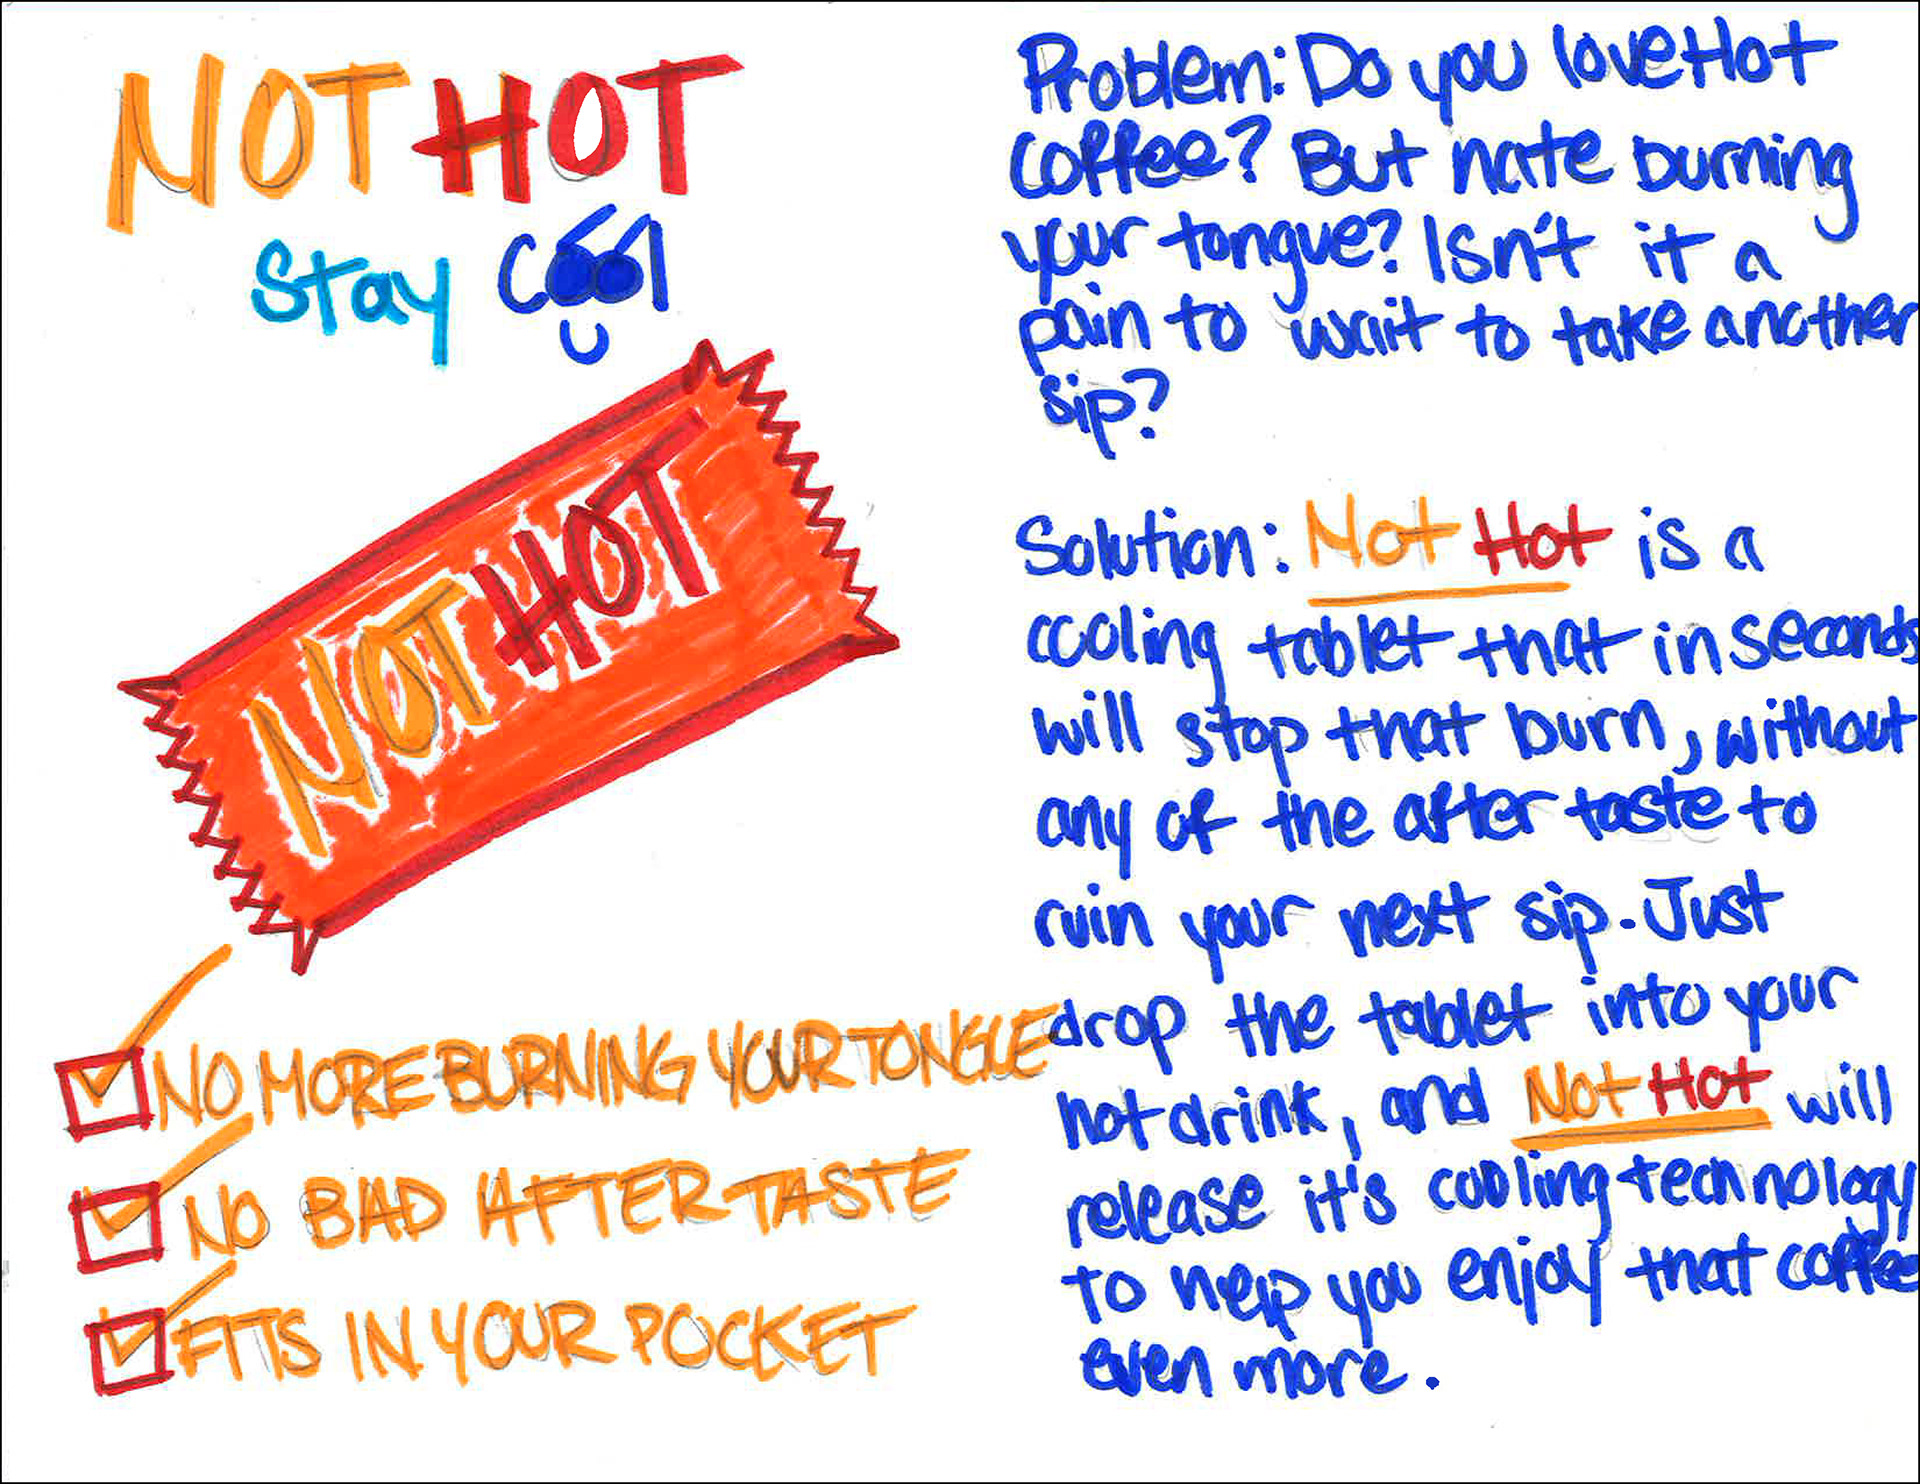 NOT HOT
Stay Cool
NOT HOT
NO MORE BURNING YOUR TONGUE
NO BAD AFTER TASTE
FITS IN YOUR POCKET
Problem: Do you love Hot
coffee? But hate burning
your tongue? Isn't it a
pain to wait to take another
sip?
Solution: Not Hot is a
cooling tablet that in seconds
will stop that burn, without
any of the after taste to
ruin your next sip. Just
drop the tablet into your
hot drink, and Not Hot will
release it's cooling technology
to help you enjoy that coffee
even more.